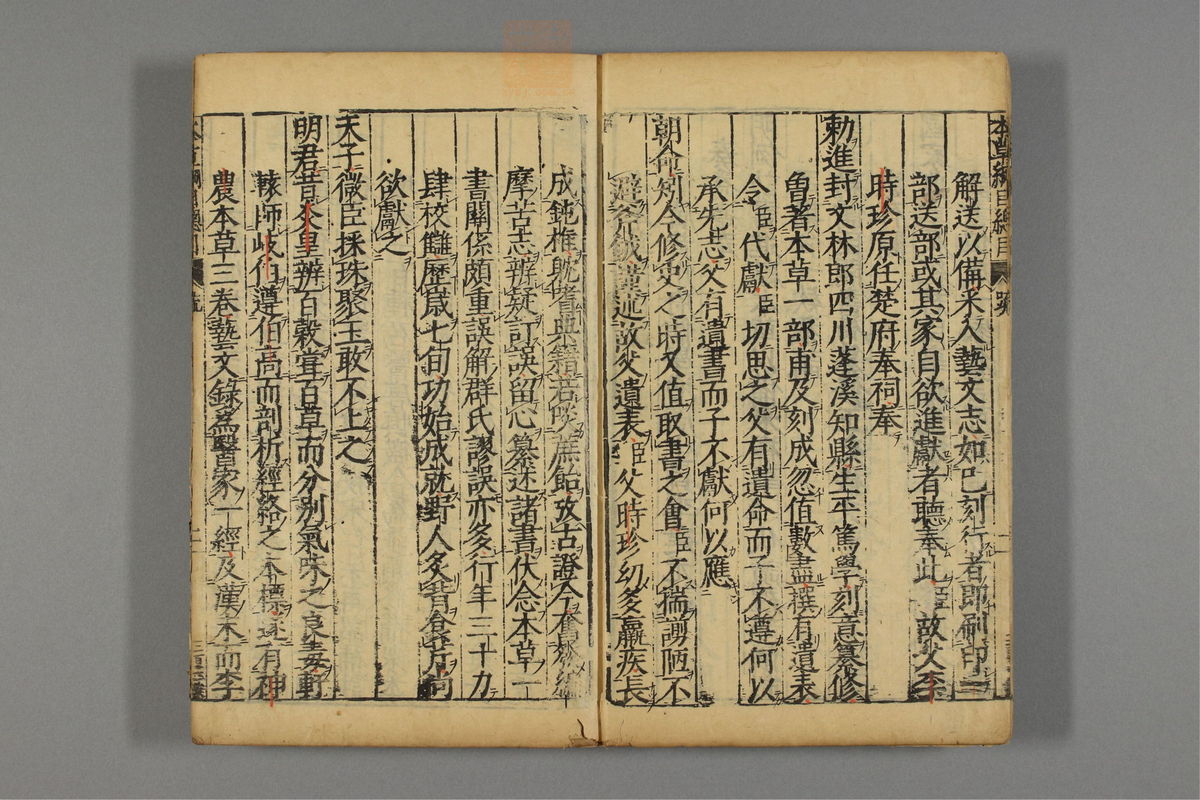 本草綱目總目
解送以備采入藝文志如已刻行者即刷印一
部送部或其家自欲進獻者聽奉此臣故父李
時珍原任楚府奉祠奉
勅進封文林郎四川蓬溪知縣生平篤學刻意纂修
曾著本草一部甫及刻成忽值數盡撰有遺表
令臣代獻臣切思之父有遺命而子不遵何以
承先志父有遺書而子不獻何以應
朝命矧今修史之時又值取書之會臣不揣譾陋不
避斧鉞謹述故父遺表臣父時珍幼多羸疾長
成鈍椎耽嗜典籍若啖蔗飴攷古證今奮發編
摩苦志辨疑訂誤留心纂述諸書伏念本草一
書關係頗重誤解群氏謬誤亦多行年三十力
肆校讎歷歲七旬功始成就野人炙背食芹尚
欲獻之
天子微臣採珠聚玉敢不上之
明君昔炎皇辨百穀嘗百草而分別氣味之良毒軒
轅師岐伯遵伯高而剖析經絡之本標遂有神
農本草三卷藝文錄爲醫家一經及漢末而李